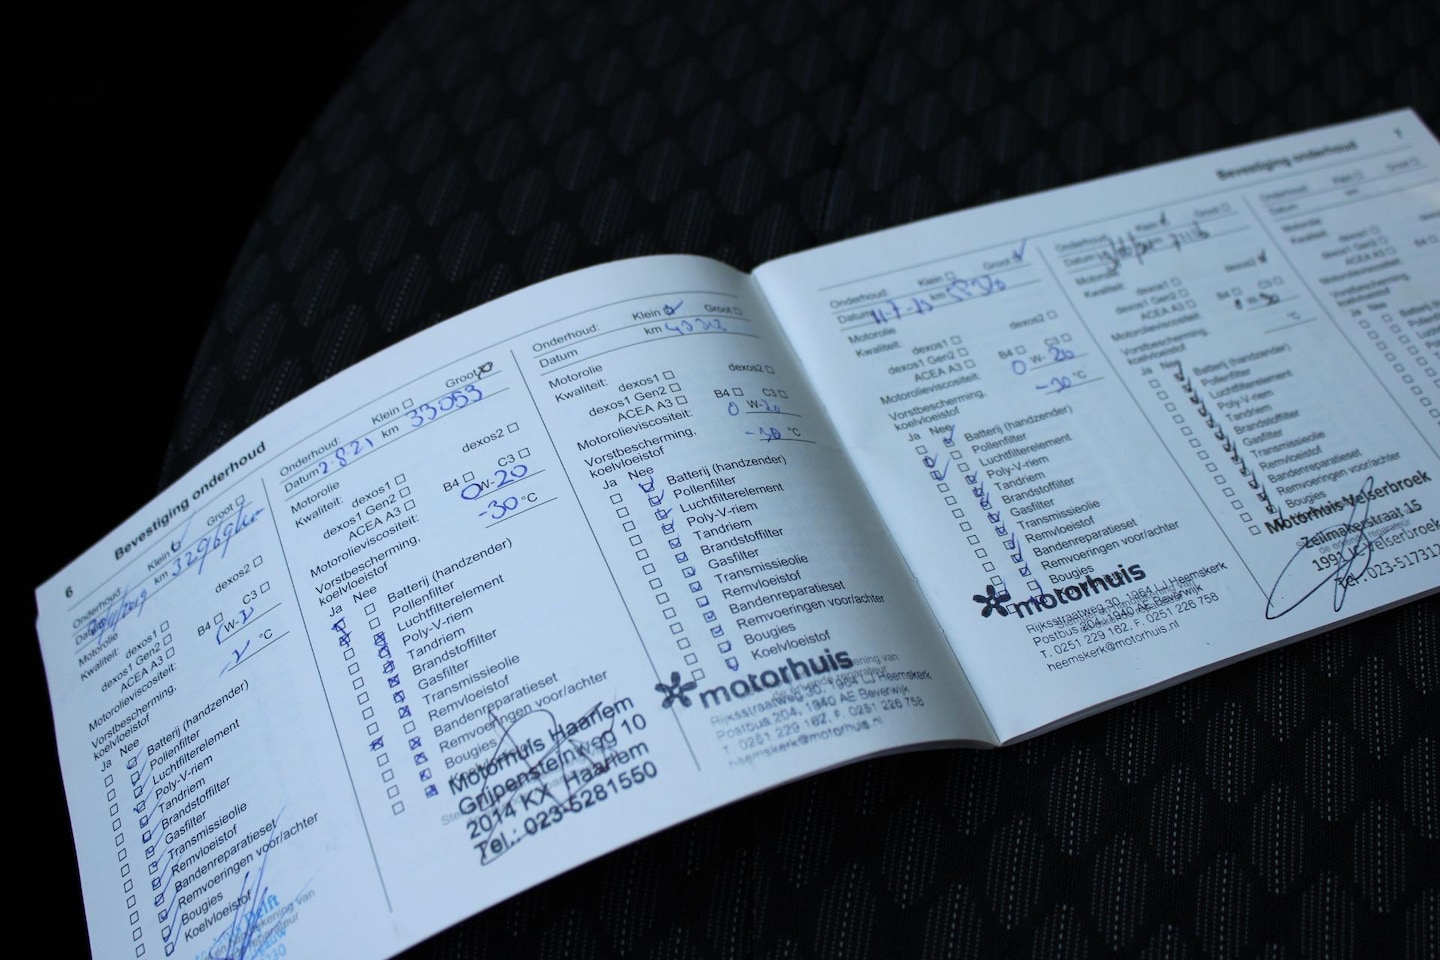 6
Bevestiging onderhoud
Onderhoud: Klein Groot
km
Motorolie
Kwaliteit: dexos1 dexos2
dexos1 Gen2
ACEA A3 B4 C3
Motorolieviscositeit: W-
Vorstbescherming,
koelvloeistof °C
Ja Nee
Batterij (handzender)
Pollenfilter
Luchtfilterelement
Poly-V-riem
Tandriem
Brandstoffilter
Gasfilter
Transmissieolie
Remvloeistof
Bandenreparatieset
Remvoeringen voor/achter
Bougies
Koelvloeistof
Delft
Onderhoud: Klein Groot
Datum 2-8-21 km 33053
Motorolie
Kwaliteit: dexos1 dexos2
dexos1 Gen2
ACEA A3 B4 C3
Motorolieviscositeit: 0W-20
Vorstbescherming,
koelvloeistof -30 °C
Ja Nee
Batterij (handzender)
Pollenfilter
Luchtfilterelement
Poly-V-riem
Tandriem
Brandstoffilter
Gasfilter
Transmissieolie
Remvloeistof
Bandenreparatieset
Remvoeringen voor/achter
Bougies
Motorhuis Haarlem
Grijpensteinweg 10
2014 KX Haarlem
Tel.: 023-5281550
Onderhoud: Klein Groot
Datum km
Motorolie
Kwaliteit: dexos1 dexos2
dexos1 Gen2
ACEA A3 B4 C3
Motorolieviscositeit: 0 W-20
Vorstbescherming,
koelvloeistof -30 °C
Ja Nee
Batterij (handzender)
Pollenfilter
Luchtfilterelement
Poly-V-riem
Tandriem
Brandstoffilter
Gasfilter
Transmissieolie
Remvloeistof
Bandenreparatieset
Remvoeringen voor/achter
Bougies
Koelvloeistof
motorhuis
Rijksstraatweg 30, 1964 LJ Heemskerk
Postbus 204, 1940 AE Beverwijk
T. 0251 229 162, F. 0251 226 758
heemskerk@motorhuis.nl
Bevestiging onderhoud
Onderhoud Klein Groot
Datum km
Motorolie
Kwaliteit: dexos1 dexos2
dexos1 Gen2
ACEA A3 B4 C3
Motorolieviscositeit: 0 W-20
Vorstbescherming,
koelvloeistof -30 °C
Ja Nee
Batterij (handzender)
Pollenfilter
Luchtfilterelement
Poly-V-riem
Tandriem
Brandstoffilter
Gasfilter
Transmissieolie
Remvloeistof
Bandenreparatieset
Remvoeringen voor/achter
Bougies
motorhuis
Rijksstraatweg 30, 1964 LJ Heemskerk
Postbus 204, 1940 AE Beverwijk
T. 0251 229 162, F. 0251 226 758
heemskerk@motorhuis.nl
Onderhoud Klein Groot
Datum
Motorolie
Kwaliteit: dexos1 dexos2
dexos1 Gen2
ACEA A3 B4 C3
Motorolieviscositeit:
Vorstbescherming,
koelvloeistof °C
Ja Nee
Batterij (handzender)
Pollenfilter
Luchtfilterelement
Poly-V-riem
Tandriem
Brandstoffilter
Gasfilter
Transmissieolie
Remvloeistof
Bandenreparatieset
Remvoeringen voor/achter
Bougies
Motorhuis Velserbroek
Zeilmakerstraat 15
Velserbroek
Tel. 023-517312
Onderhoud Klein Groot
Datum km
Motorolie
Kwaliteit: dexos1
dexos1 Gen2
ACEA A3
Motorolieviscositeit
Vorstbescherming
koelvloeistof
Ja Nee